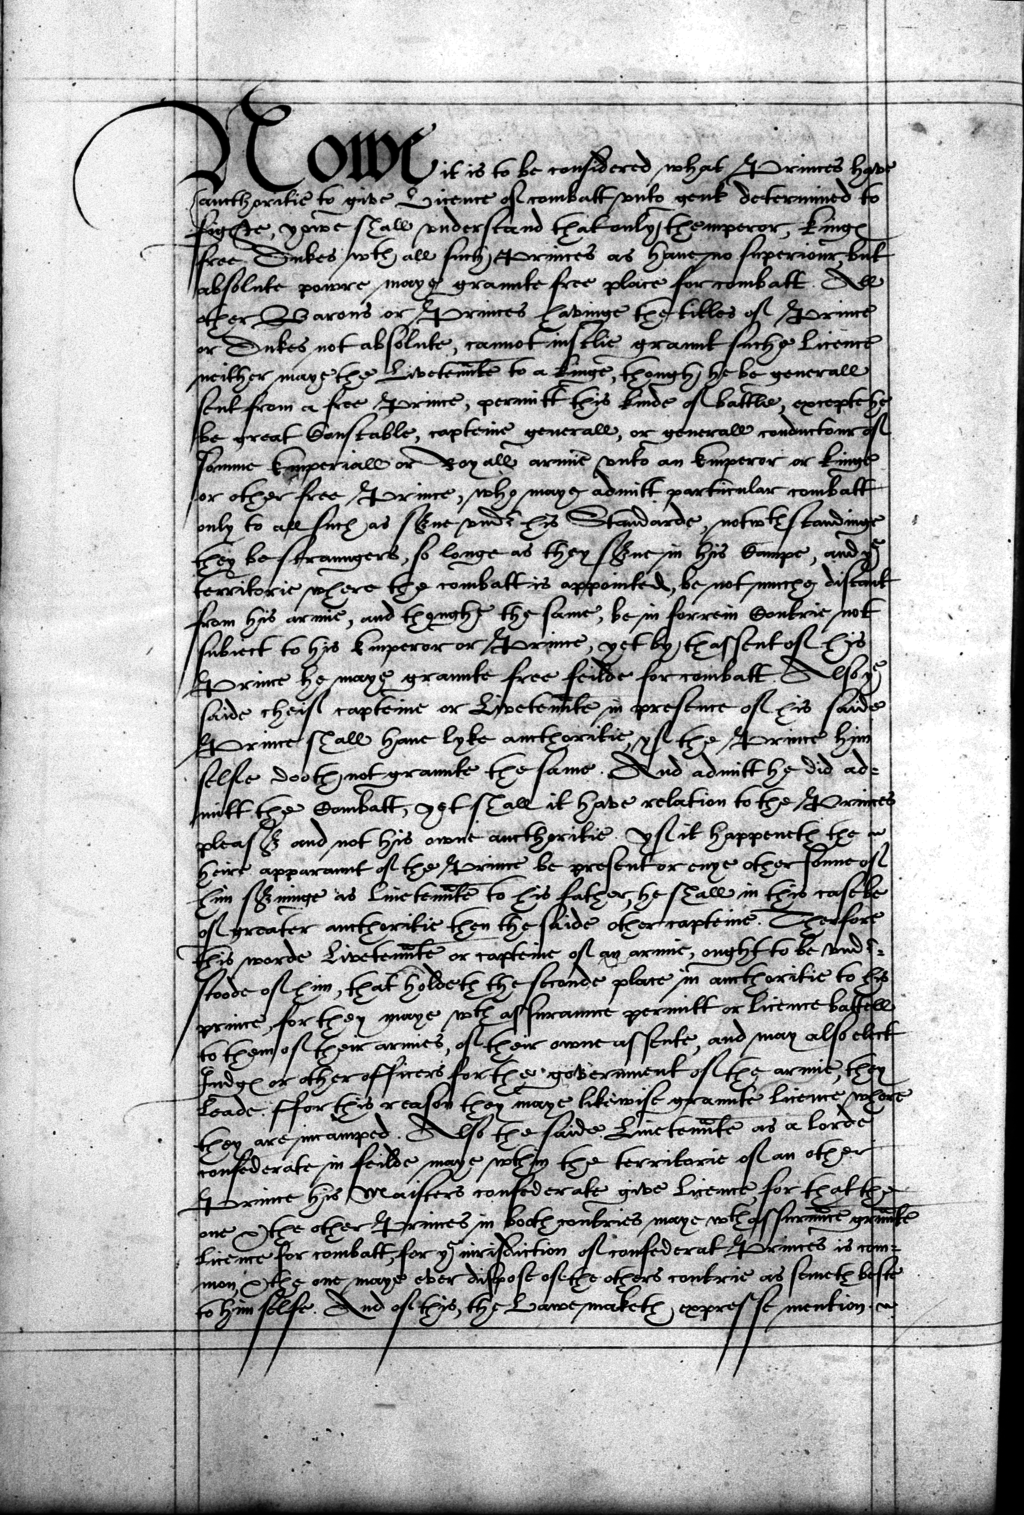 Nowe it is to be considered what Princes have
aucthoritie to give Licence of combatt vnto gent determined to
fighte, yowe shall vnderstand that only themperor, kinges
free Dukes wth all such Princes as have no superiour, but
absolute powre maye graunte free place for combatt. All
other Barons or Princes havinge the titles of Prince
or Dukes not absolute, cannot graunt suche licence
neither maye the Livetennte to a kinge, though he be generall
sent from a free Prince, permitt this kinde of battle, excepte he
be great Constable, capteine generall, or generall conductour of
somme Emperiall or Royall armie vnto an Emperor or kinge
or other free Prince, who maye admitt particular combatt
only to all such as serve vnder his Standarde, notwthstandinge
they be straungers, so longe as they serve in his Campe, and ye
territorie where the combatt is appointed, be not muche distant
from his armie, and thoughe the same, be in forrein Contrie not
subiect to his Emperor or Prince, yet by thassent of his
Prince he maye graunte free feilde for combatt. Also ye
saide cheif capteine or Livetennte in presence of his saide
Prince shall have lyke aucthoritie, yf the Prince him
selfe dooth not graunte the same. And admitt he did ad=
mitt the Combatt, yet shall it have relation to the Princes
pleasr and not his owne aucthoritie. yf it happeneth the
heire apparaunt of the Prince be present or enye other sonne of
him servinge as Livetennte to his father, he shall in this case be
of greater aucthoritie then the saide other capteine. Therfore
this worde Livetennte or capteine of an armie, ought to be vnder=
stoode of him, that holdeth the seconde place in aucthoritie to his
prince, for they maye wth assuraunce permitt or licence battell
to them of their armies, of their owne assente, and may also elect
Iudges or other officers for the government of the armie, they
leade. ffor this reason they maye likewise graunte licence where
they are incamped. Also the saide Livetennte as a lorde
confederate in feilde maye wthin the territorie of an other
Prince his Maisters confederate give licence, for that the
one & the other Princes in both contries maye wth assurance graunte
licence for combatt, for ye iurisdiction of confederat Princes is com=
mon, & the one maye ever dispose of the others contrie as semeth beste
to him selfe. And of this, the Lawe maketh expresse mention.